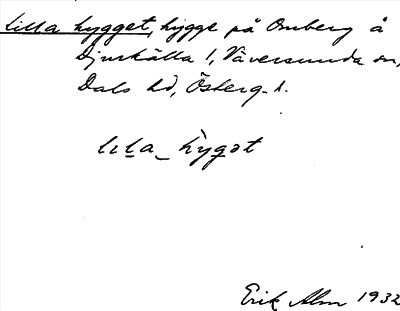 Lilla hygget, hygge på Omberg å
Djurkälla 1, Väversunda sn,
Dals hd, Österg. l.
lɩla_ hỳgət
Erik Alm 1932